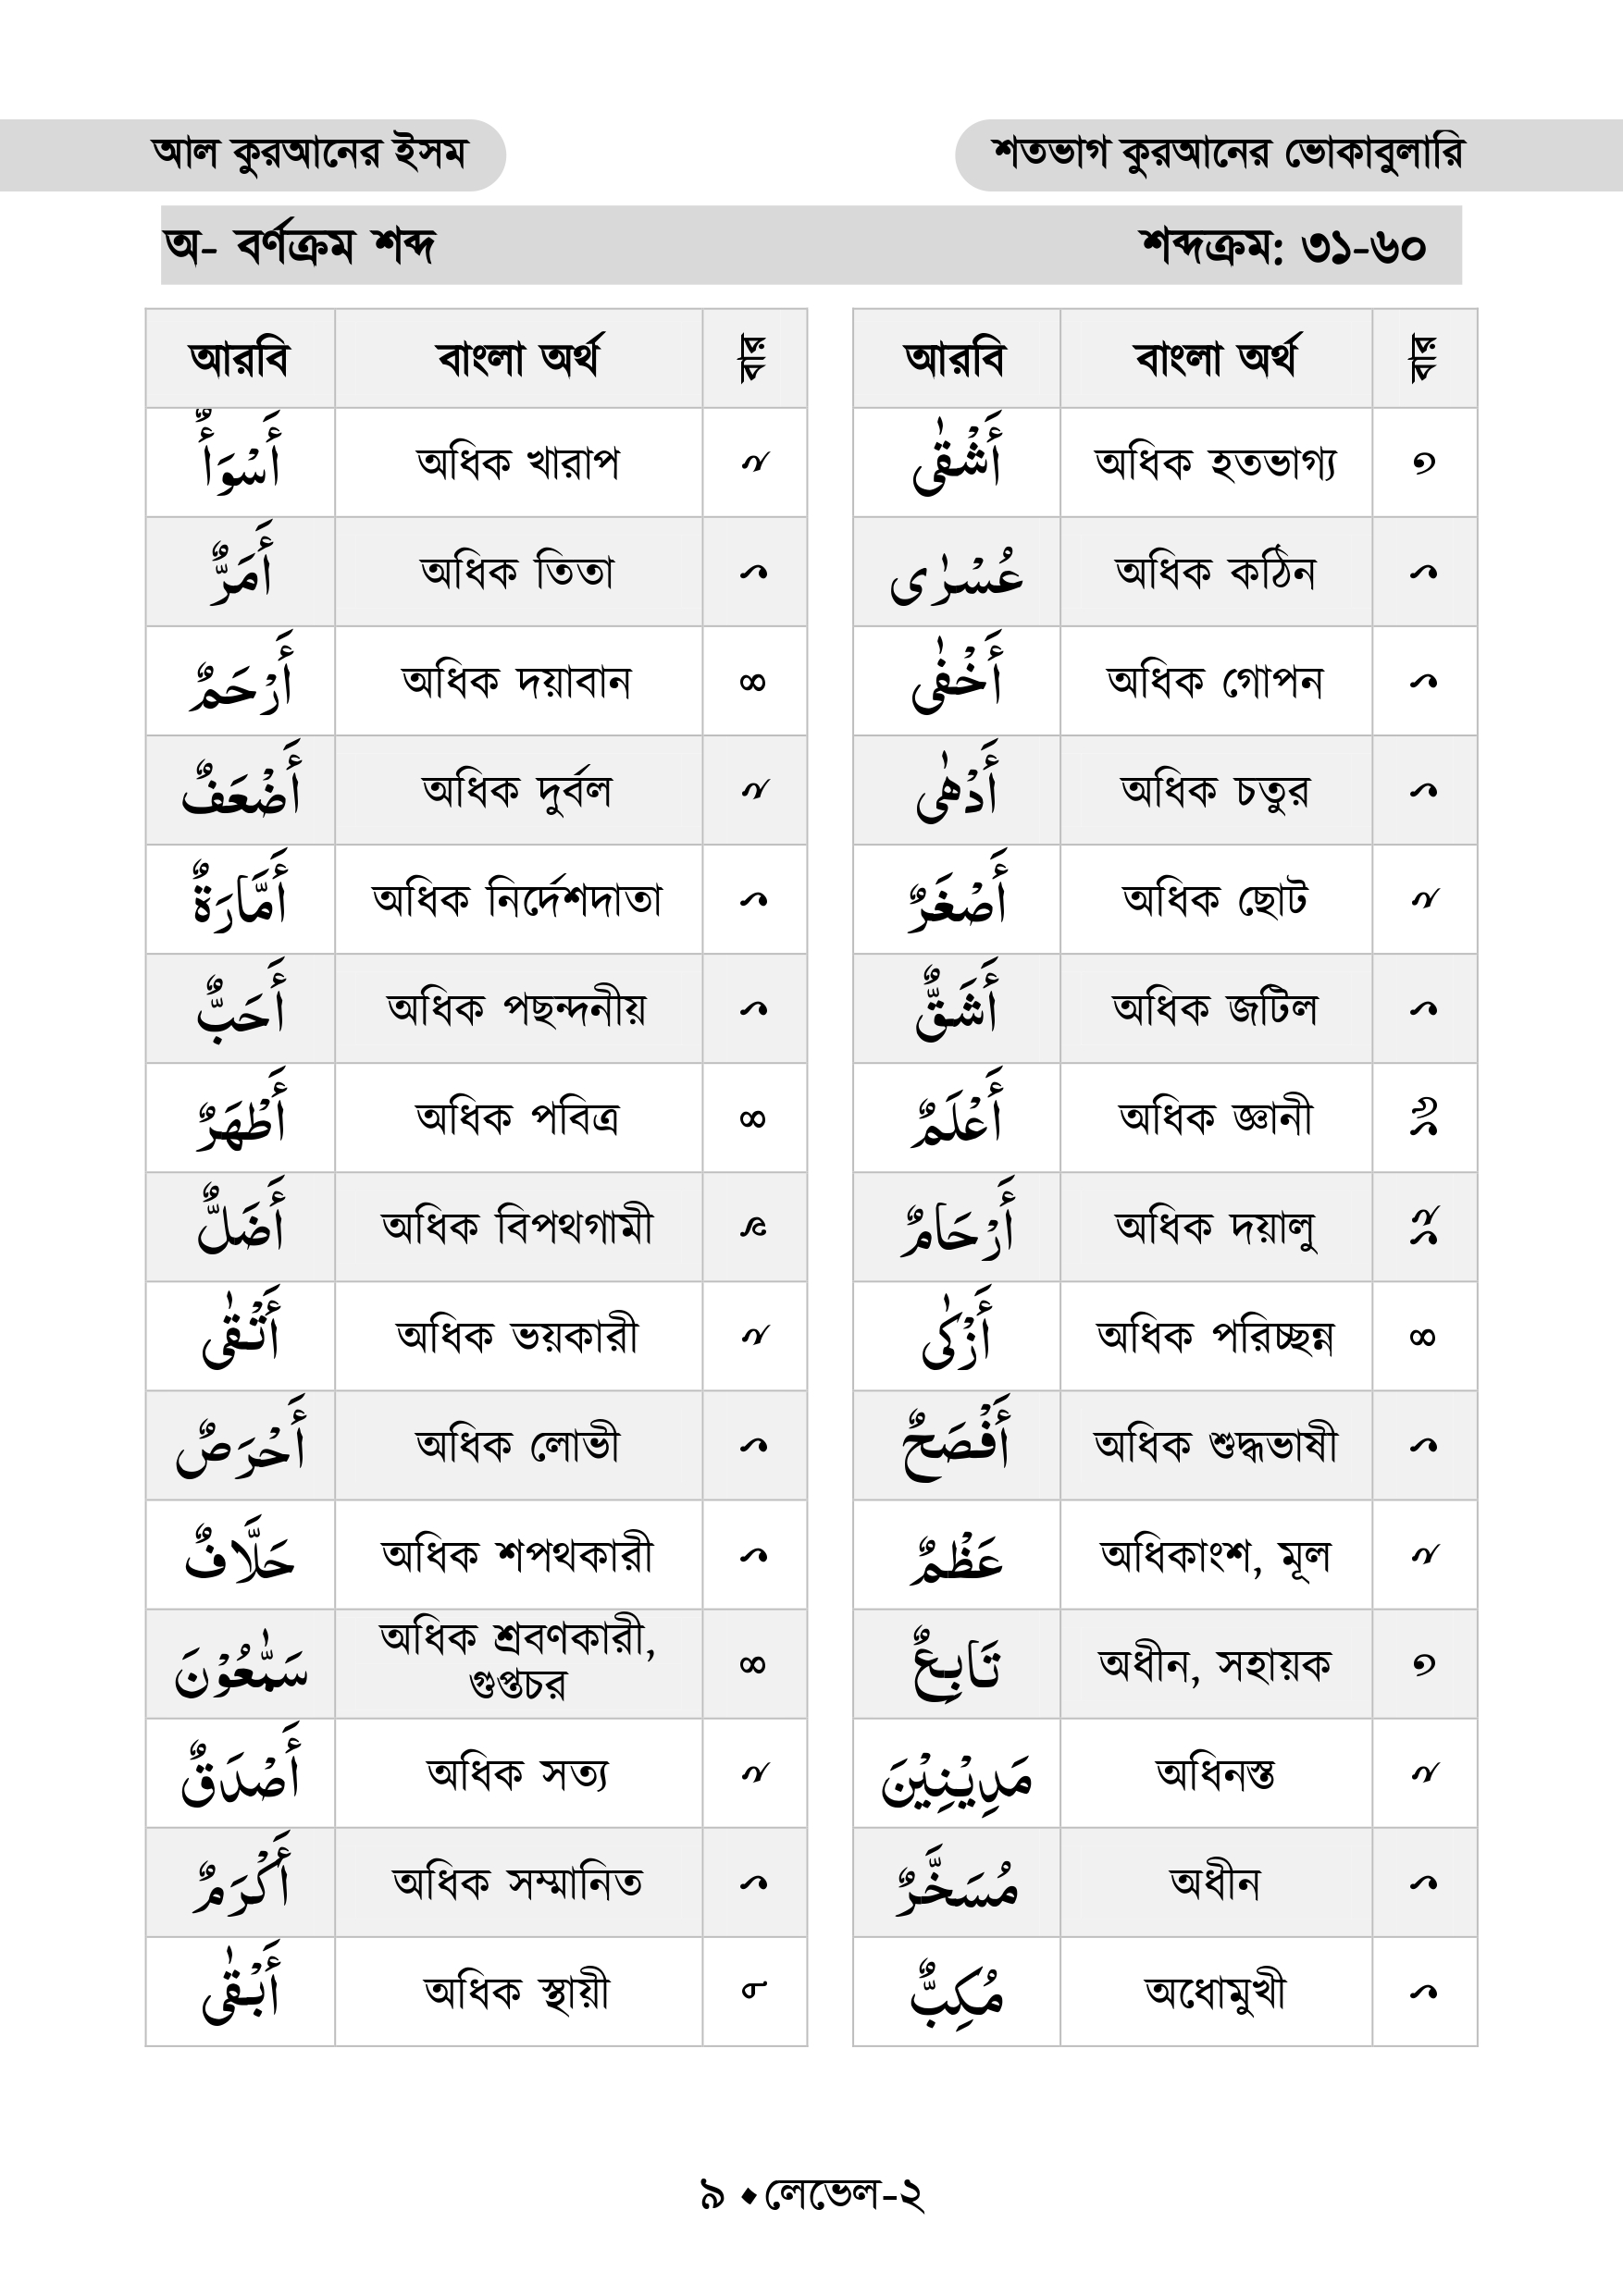 আল কুরআনের ইসম
শতভাগ কুরআনের ভোকাবুলারি
অ- বর্ণক্রম শব্দ শব্দক্রম: ৩১-৬০
আরবি বাংলা অর্থ বার
أَسْوَأٌ অধিক খারাপ ২
أَمَرٌّ অধিক তিতা ১
أَرْحَمٌ অধিক দয়াবান ৪
أَضْعَفٌ অধিক দুর্বল ২
أَمَّارَةٌ অধিক নির্দেশদাতা ১
أَحَبٌّ অধিক পছন্দনীয় ১
أَطْهَرٌ অধিক পবিত্র ৪
أَضَلٌّ অধিক বিপথগামী ৯
أَتْقٰى অধিক ভয়কারী ২
أَحْرَصٌ অধিক লোভী ১
حَلَّافٌ অধিক শপথকারী ১
سَمّٰعُوْنَ অধিক শ্রবণকারী,
গুপ্তচর ৪
أَصْدَقٌ অধিক সত্য ২
أَكْرَمٌ অধিক সম্মানিত ১
أَبْقٰى অধিক স্থায়ী ৮
আরবি বাংলা অর্থ বার
أَشْقٰى অধিক হতভাগ্য ৩
عُسْرٰى অধিক কঠিন ১
أَخْفٰى অধিক গোপন ১
أَدْهٰى অধিক চতুর ১
أَصْغَرٌ অধিক ছোট ২
أَشَقٌّ অধিক জটিল ১
أَعْلَمٌ অধিক জ্ঞানী ১৬
أَرْحَامٌ অধিক দয়ালু ১২
أَزْكٰى অধিক পরিচ্ছন্ন ৪
أَفْصَحٌ অধিক শুদ্ধভাষী ১
عَظْمٌ অধিকাংশ, মূল ২
تَابِعٌ অধীন, সহায়ক ৩
مَدِيْنِيْنَ অধিনস্ত ২
مُسَخَّرٌ অধীন ১
مُكِبٌّ অধোমুখী ১
৯ ♦ লেভেল-২